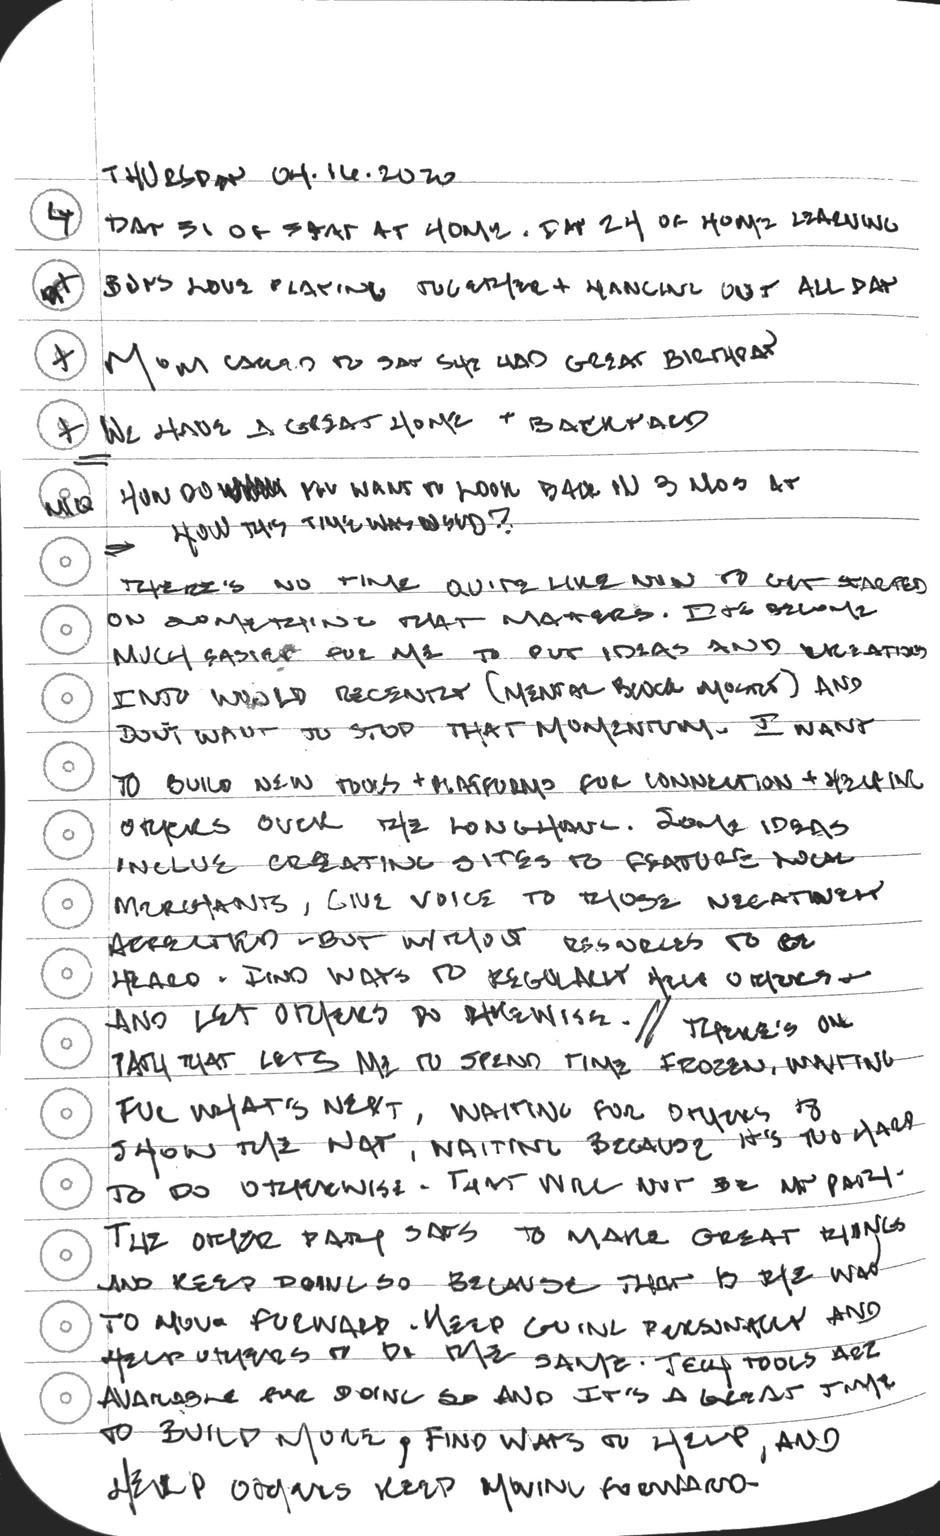 THURSDAY 04.16.2020
4 DAY 31 OF STAY AT HOME. DAY 24 OF HOME LEARNING
BOYS LOVE PLAYING TOGETHER + HANGING OUT ALL DAY
+ MOM CALLED TO SAY SHE HAD GREAT BIRTHDAY
+ WE HAVE A GREAT HOME + BACKYARD
MIQ HOW DO YOU WANT TO LOOK BACK IN 3 MOS AT
⇒ HOW THIS TIME WAS USED?
THERE'S NO TIME QUITE LIKE NOW TO GET STARTED
ON SOMETHING THAT MATTERS. IT'S BECOME
MUCH EASIER FOR ME TO PUT IDEAS AND CREATIONS
INTO WORLD RECENTLY (MENTAL BLOCK MOSTLY) AND
DON'T WANT TO STOP THAT MOMENTUM. I WANT
TO BUILD NEW TOOLS + PLATFORMS FOR CONNECTION + HELPING
OTHERS OVER THE LONGHAUL. SOME IDEAS
INCLUE CREATING SITES TO FEATURE LOCAL
MERCHANTS, GIVE VOICE TO THOSE NEGATIVELY
AFFECTED - BUT WITHOUT RESOURCES TO BE
HEARD. FIND WAYS TO REGULARLY HELP OTHERS -
AND LET OTHERS DO LIKEWISE. // THERE'S ONE
PATH THAT LETS ME TO SPEND TIME FROZEN, WAITING
FOR WHAT'S NEXT, WAITING FOR OTHERS TO
SHOW THE WAY, WAITING BECAUSE IT'S TOO HARD
TO DO OTHERWISE. THAT WILL NOT BE MY PATH.
THE OTHER PATH SAYS TO MAKE GREAT THINGS
AND KEEP DOING SO BECAUSE THAT IS THE WAY
TO MOVE FORWARD. KEEP GOING PERSONALLY AND
HELP OTHERS TO DO THE SAME. TECH TOOLS ARE
AVAILABLE FOR DOING SO AND IT'S A GREAT TIME
TO BUILD MORE, FIND WAYS TO HELP, AND
HELP OTHERS KEEP MOVING FORWARD-